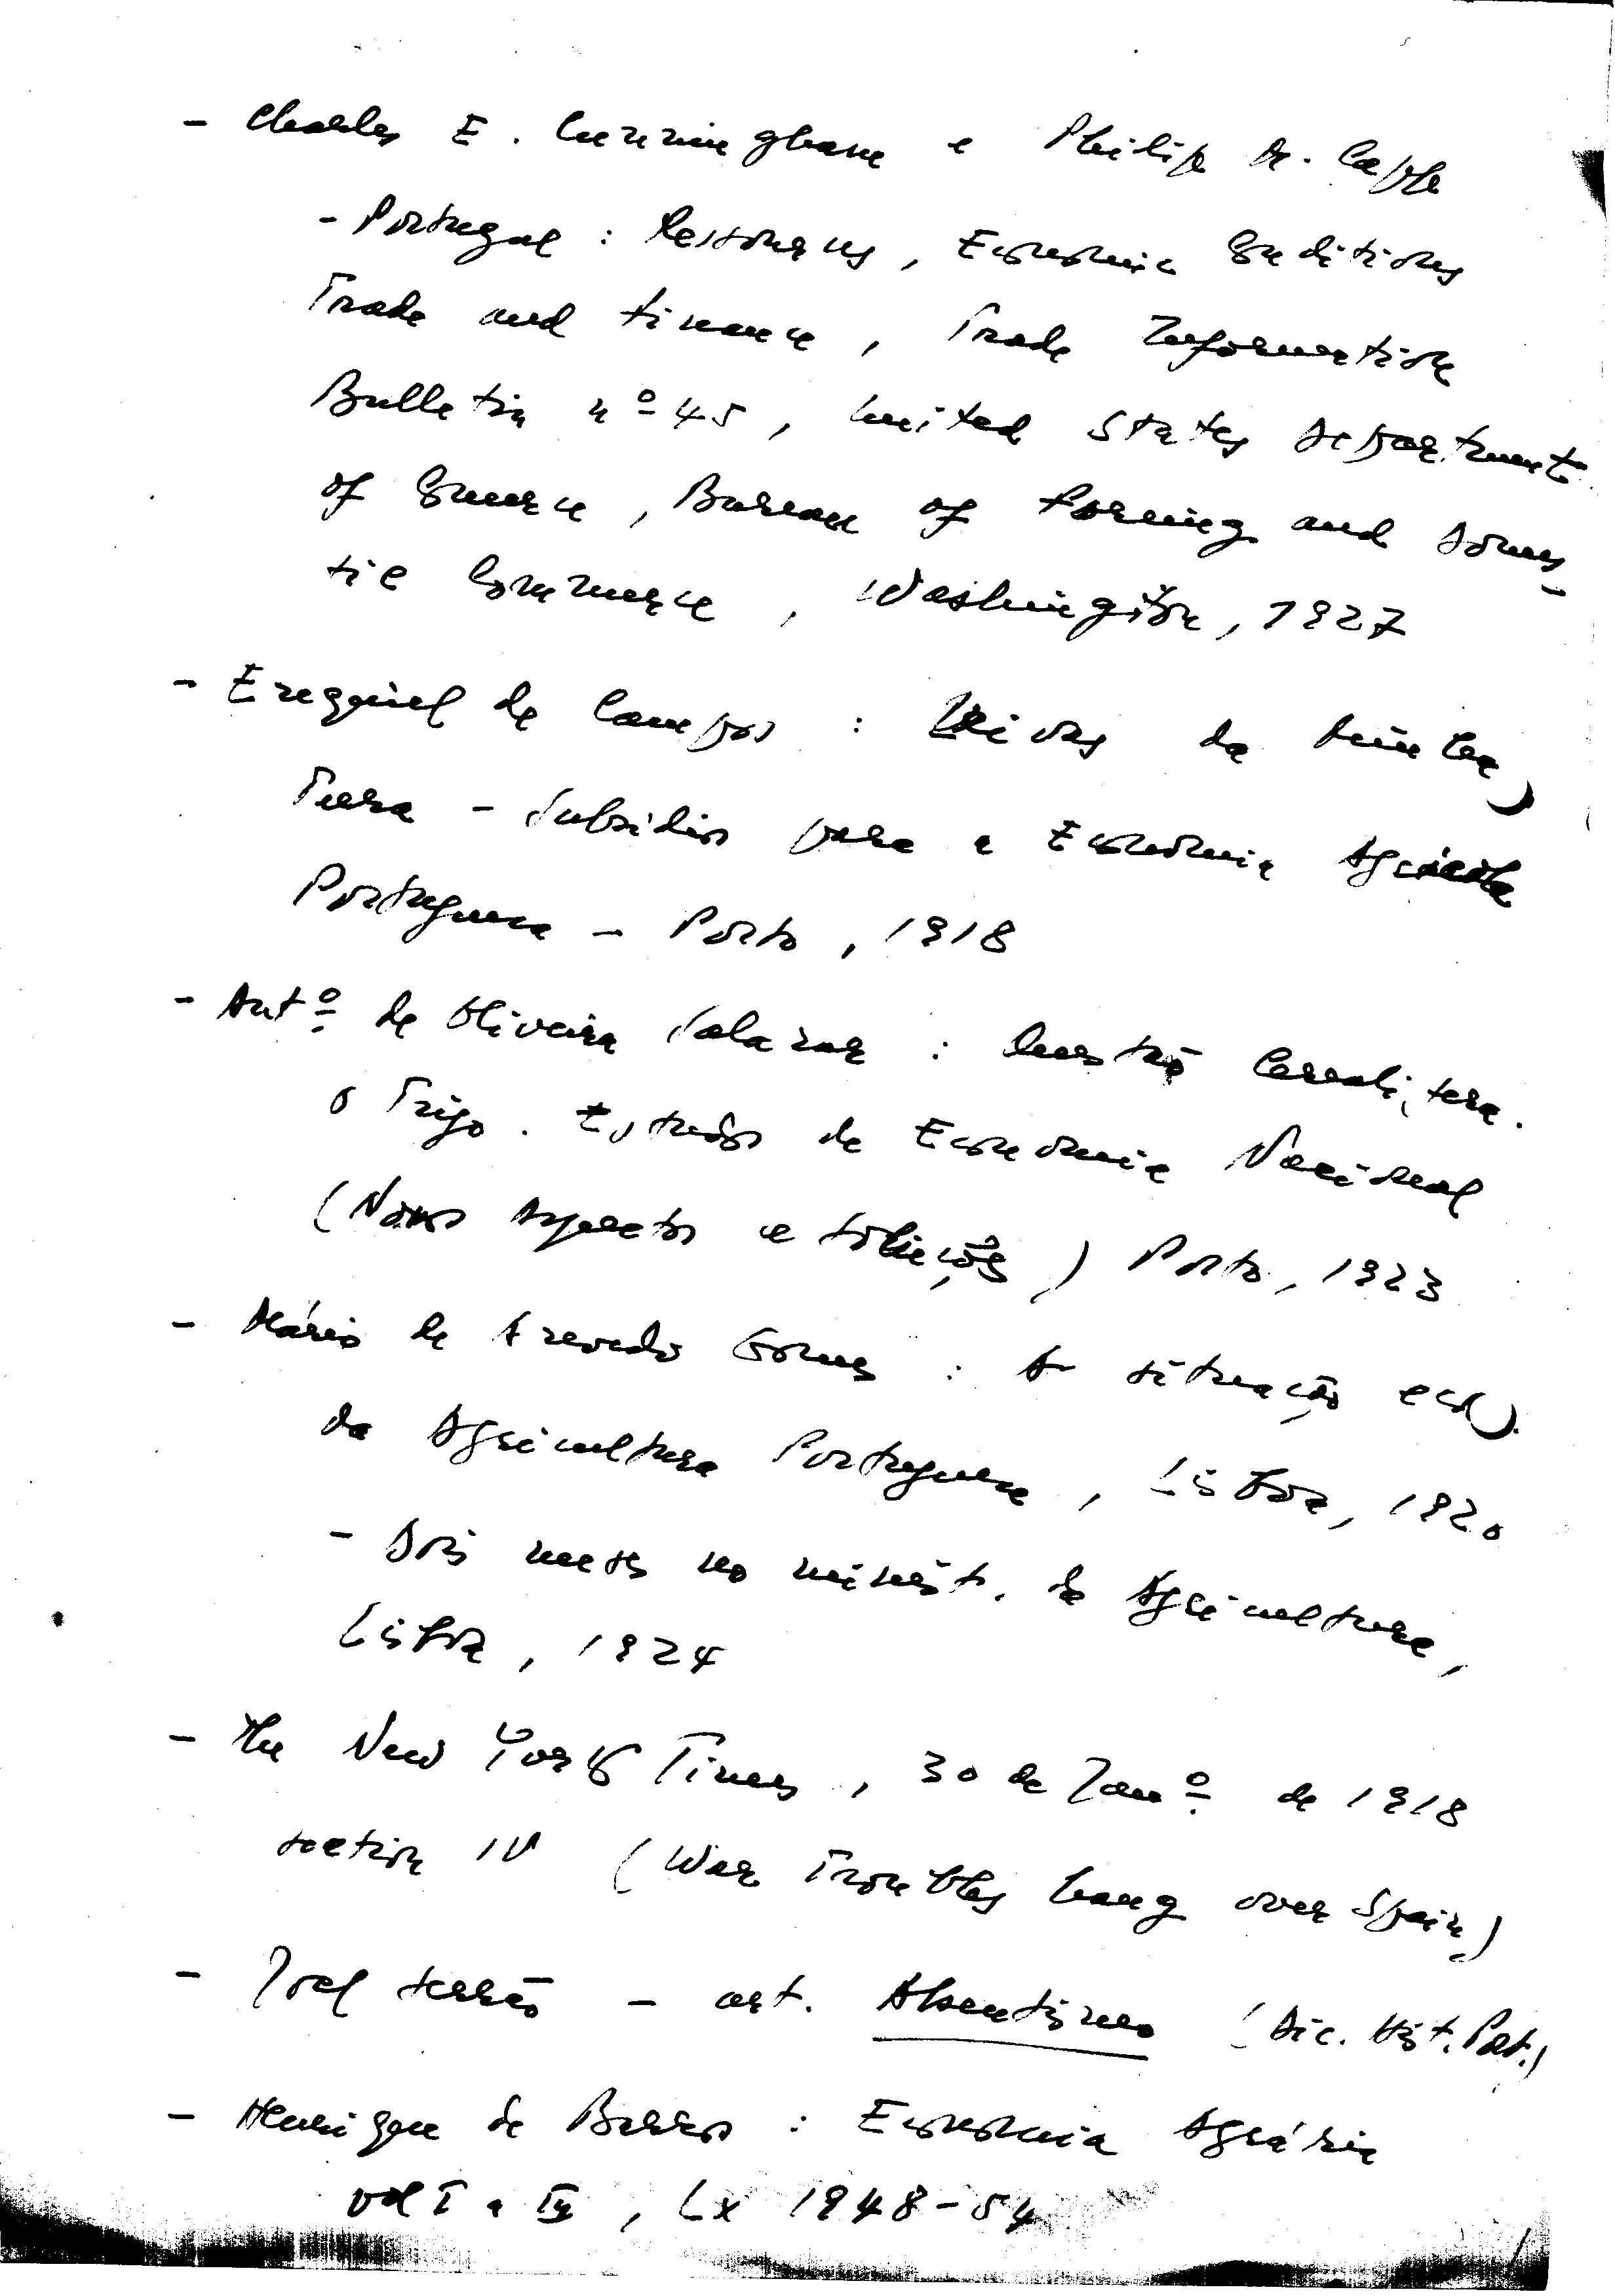 - Charles E. Cunningham e Philip M. Copp
- Portugal : Ressources, Economic Conditions
Trade and Finance, Trade Information
Bulletin nº 45, United States Department
of Commerce, Bureau of Foreing and Domes-
tic Commerce, Washington, 1927
- Ezequiel de Campos : Leivas da Minha
Terra - Subsidios para a Economia Agrícola
Portuguesa - Porto, 1918
- Antº de Oliveira Salazar : Questão Cerealífera.
O Trigo. Estudos de Economia Nacional
(Novos Aspectos e Soluções) Porto, 1923
- Mário de Azevedo Gomes : A situação eco.
da Agricultura Portuguesa, Lisboa, 1920
- Dois meses no minist. da Agricultura,
Lisboa, 1924
- The New York Times, 30 de Janº de 1918
section IV (War Troubles hang over Spain)
- Joel Serrão - art. Absentismo (Dic. Hist. Port.)
- Henrique de Barros : Economia Agrária
vol I a , Lx 1948-54